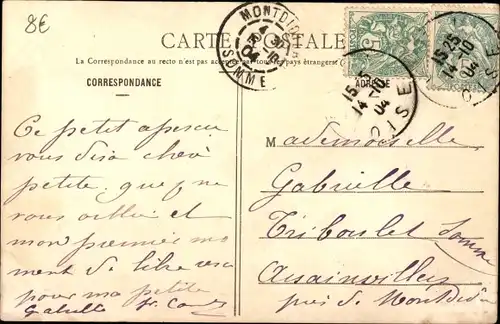 8€
CARTE POSTALE
La Correspondance au recto n'est pas acceptée par tous les pays étrangers
CORRESPONDANCE
ADRESSE
MONTDIDIER
SOMME
5
15 25
14 10
04
OISE
15 25
14 10
04
OISE
Ce petit aperçu
vous dira chère
petite que je ne
vous oublie et
mon premier mo
ment de libre sera
pour ma petite
Gabrielle
Mademoiselle
Gabrielle
Triboulet Somme
Assainvillers
près de Montdidier